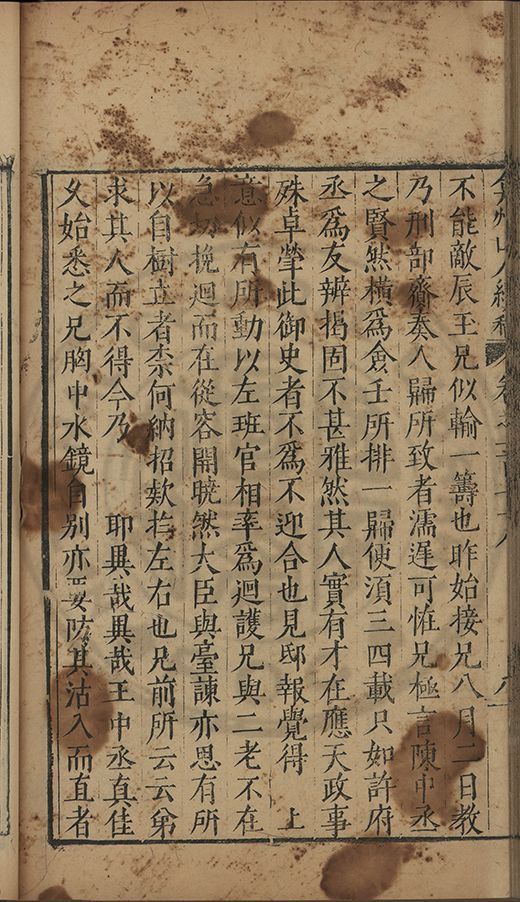 弇州山人續稿 卷之一百七十八 八
不能敵辰王兄似輸一籌也昨始接兄八月二日教
乃刑部齎奏人歸所致者濡遲可恠兄極言陳中丞
之賢然橫為僉壬所排一歸便須三四載只如許府
丞為友辨揭固不甚雅然其人實有才在應天政事
殊卓犖此御史者不為不迎合也見邸報覺得 上
意似有所動以左班官相率為迴護兄與二老不在
急切挽迴而在從容開曉然大臣與臺諫亦思有所
以自樹立者柰何納招欵於左右也兄前所云云弟
求其人而不得今乃 耶異哉異哉王中丞真佳
久始悉之兄胸中水鏡自別亦要防其沽入而直者